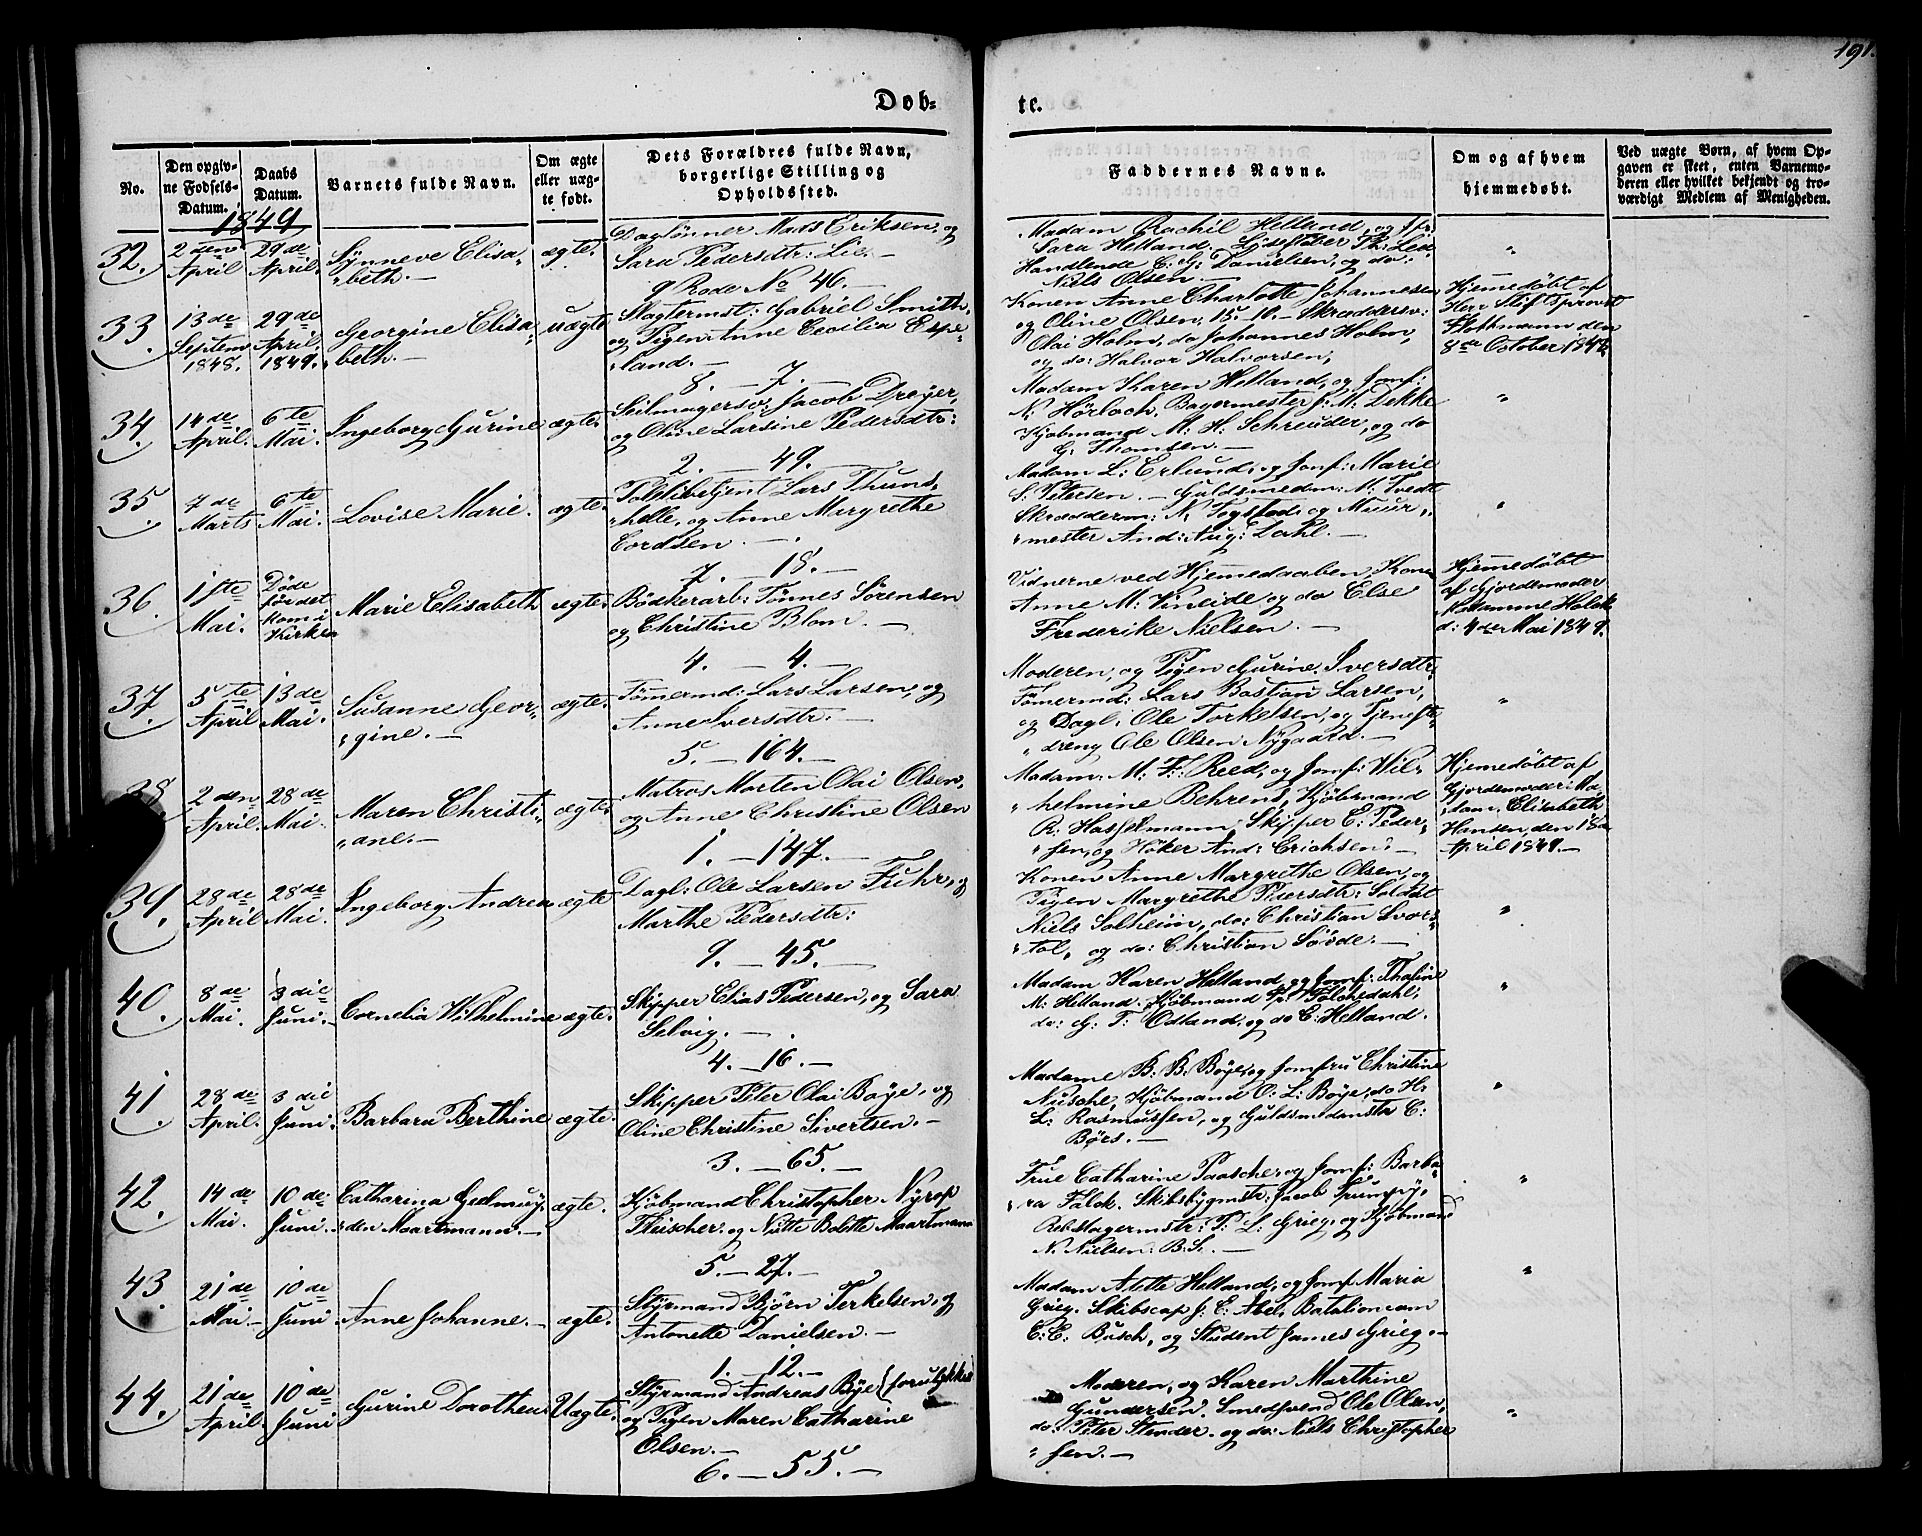 191.
Døb-
te.
No.
Den opgiv-
ne Fødsels-
Datum.
Daabs
Datum.
Barnets fulde Navn.
Om ægte
eller uæg-
te født.
Dets Forældres fulde Navn,
borgerlige Stilling og
Opholdssted.
Faddernes Navne.
Om og af hvem
hjemmedøbt.
Ved uægte Børn, af hvem Op-
gaven er skeet, enten Barnemo-
deren eller hvilket bekjendt og tro-
værdigt Medlem af Menigheden.
1849
32.
2den
April
29de
April.
Synneve Elisa-
"beth.—
ægte.
Daglønner Mads Eriksen, og
Sara Pedersdtr: Lie.—
9 Rode No 46.—
Madam Rachil Helland, og Jfr.
Sara Helland.
Handlende C. G: Danielsen, og do:
Niels Olsen.—
"
33.
13de
Septem
1848.
29de
April.
1849.
Georgine Elisa-
"beth.—
uægte
Slagtermst: Gabriel Smith,
og Pigen Anne Cecilia Espe-
"land.—
8.—7.—
Konen Anne Charlotte Johannesen
og Oline Olsen, 15.-10.— Skræddersv:
Olai Holm, do Johannes Holm,
og do: Halvor Halvorsen,
Hjemedøbt af
Herr Stiftsprovst
den
8de October 1848.
34.
14de
April.
6te
Mai.
Ingeborg Gurine
ægte.
Seilmagersv: Jacob Dreyer,
og Oline Larsine Pedersdtr:
2.—49.—
Madam Karen Helland, og Jomf:
N. Hørloch. Bagermester J: M: Dekke
Kjøbmand M. H. Schreuder, og do
G. Thomsen.—
"
35.
7de
Marts
6te
Mai.
Lovise Marie.
ægte.
Toldbetjent Lars Thuns-
"helle, og Anne Margrethe
Cordsen.—
7.—18.—
Madam L: Erlund, og Jomf: Marie
S. Petersen.— Guldsmedm: M: Tvedt
Skrædderm: N. Togstad, og Muur-
"mester And: Aug: Dahl.—
"
36.
1ste
Mai.
Døde
før det
kom i
Kirken
Marie Elisabeth
ægte.
Bødkerarb: Tønnes Sørensen
og Christine Blom.—
4.—4.—
Vidnerne ved Hjemedaaben, Kone
Anne M: Vineide og do Else
Frederike Nielsen.—
Hjemedøbt
af Gjordemoder
Madamme Holck
d: 4de Mai 1849.
37.
5te
April
13de
Mai.
Susanne Geor-
"gine.—
ægte.
Tømermd: Lars Larsen, og
Anne Iversdtr.—
5.—164.—
Moderen, og Pigen Gurine Iversdtr,
Tømermd: Lars Bastian Larsen,
og Dagl: Ole Torkelsen, og Tjeneste-
"dreng Ole Olsen Nygaard.—
"
38.
2den
April.
28de
Mai.
Maren Christi-
"ane.—
ægte.
Matros Morten Olai Olsen,
og Anne Christine Olsen
1.—147.—
Madam: M: F: Reed, og Jomf: Wil-
"helmine Behrens, Kjøbmand
R: Hasselmann, Skipper E: Peder-
"sen, og Høker And: Erichsen.—
Hjemedøbt af
Gjordemoder Ma-
dam. Elisabeth
Hansen, den 18de
April 1849.—
39.
28de
April
28de
Mai.
Ingeborg Andrea
ægte
Dagl: Ole Larsen Fuhr, og
Marthe Pedersdtr:
9.—45.—
Konen Anne Margrethe Olsen, og
Pigen Margrethe Pedersdtr: Soldat
Niels Solheim, do: Christian Svors-
"tøl, og do: Christian Søvde.—
"
40.
8de
Mai.
3die
Juni.
Cornelia Wilhelmine
ægte.
Skipper Elias Pedersen, og Sara
Selvig.—
4.—16.—
Madam Karen Helland, og Jomf: Thaline
M: Helland. Kjøbmand P. Folchedahl,
do: G: T: Odland, og do E: Helland.
"
41.
28de
April.
3die
Juni.
Barbara Berthine
ægte.
Skipper Peter Olai Bøye, og
Oline Christine Sivertsen.—
3.—65.—
Madame B: B. Bøye, og Jomfru Christine
Nusche, Kjøbmand O: L: Bøye, do H:
L. Rasmussen, og Guldsmed
Børs.—
"
42.
14de
Mai.
10de
Juni.
Catharina Geelmuy-
"den Maartmann.—
ægte.
Kjøbmand Christopher Nyrop
Fleischer, og Nütte Bolette Maartmann
5.—27.—
Frue Catharine Paasche og Jomf: Barba-
"ra Falck. Skibsbygmstr: Jacob Trumpy,
Rebslagermstr: P: L: Grieg, og Kjøbmand
N. Nielsen: B.S.—
"
43.
21de
Mai.—
10de
Juni
Anne Johanne.—
ægte.
Styrmand Bjørn Terkelsen, og
Antonette Danielsen.—
1.—12.—
Madam Abette Helland, og Jomf. Maria
Grieg. Skibscap J: C: Abel, Batalionscm
C: E: Busch, og Student James Grieg.—
"
44.
21de
April.
10de
Juni
Gurine Dorothea
Uægte.
Styrmand Andreas Bøye (forulykket
og Pigen Maren Catharine
Olsen.—
6.—55.—
Moderen, og Karen Marthine
Gundersen. Smedsvend Ole Olsen,
do. Peter Stender, og do: Niels Christopher-
"sen.—
"